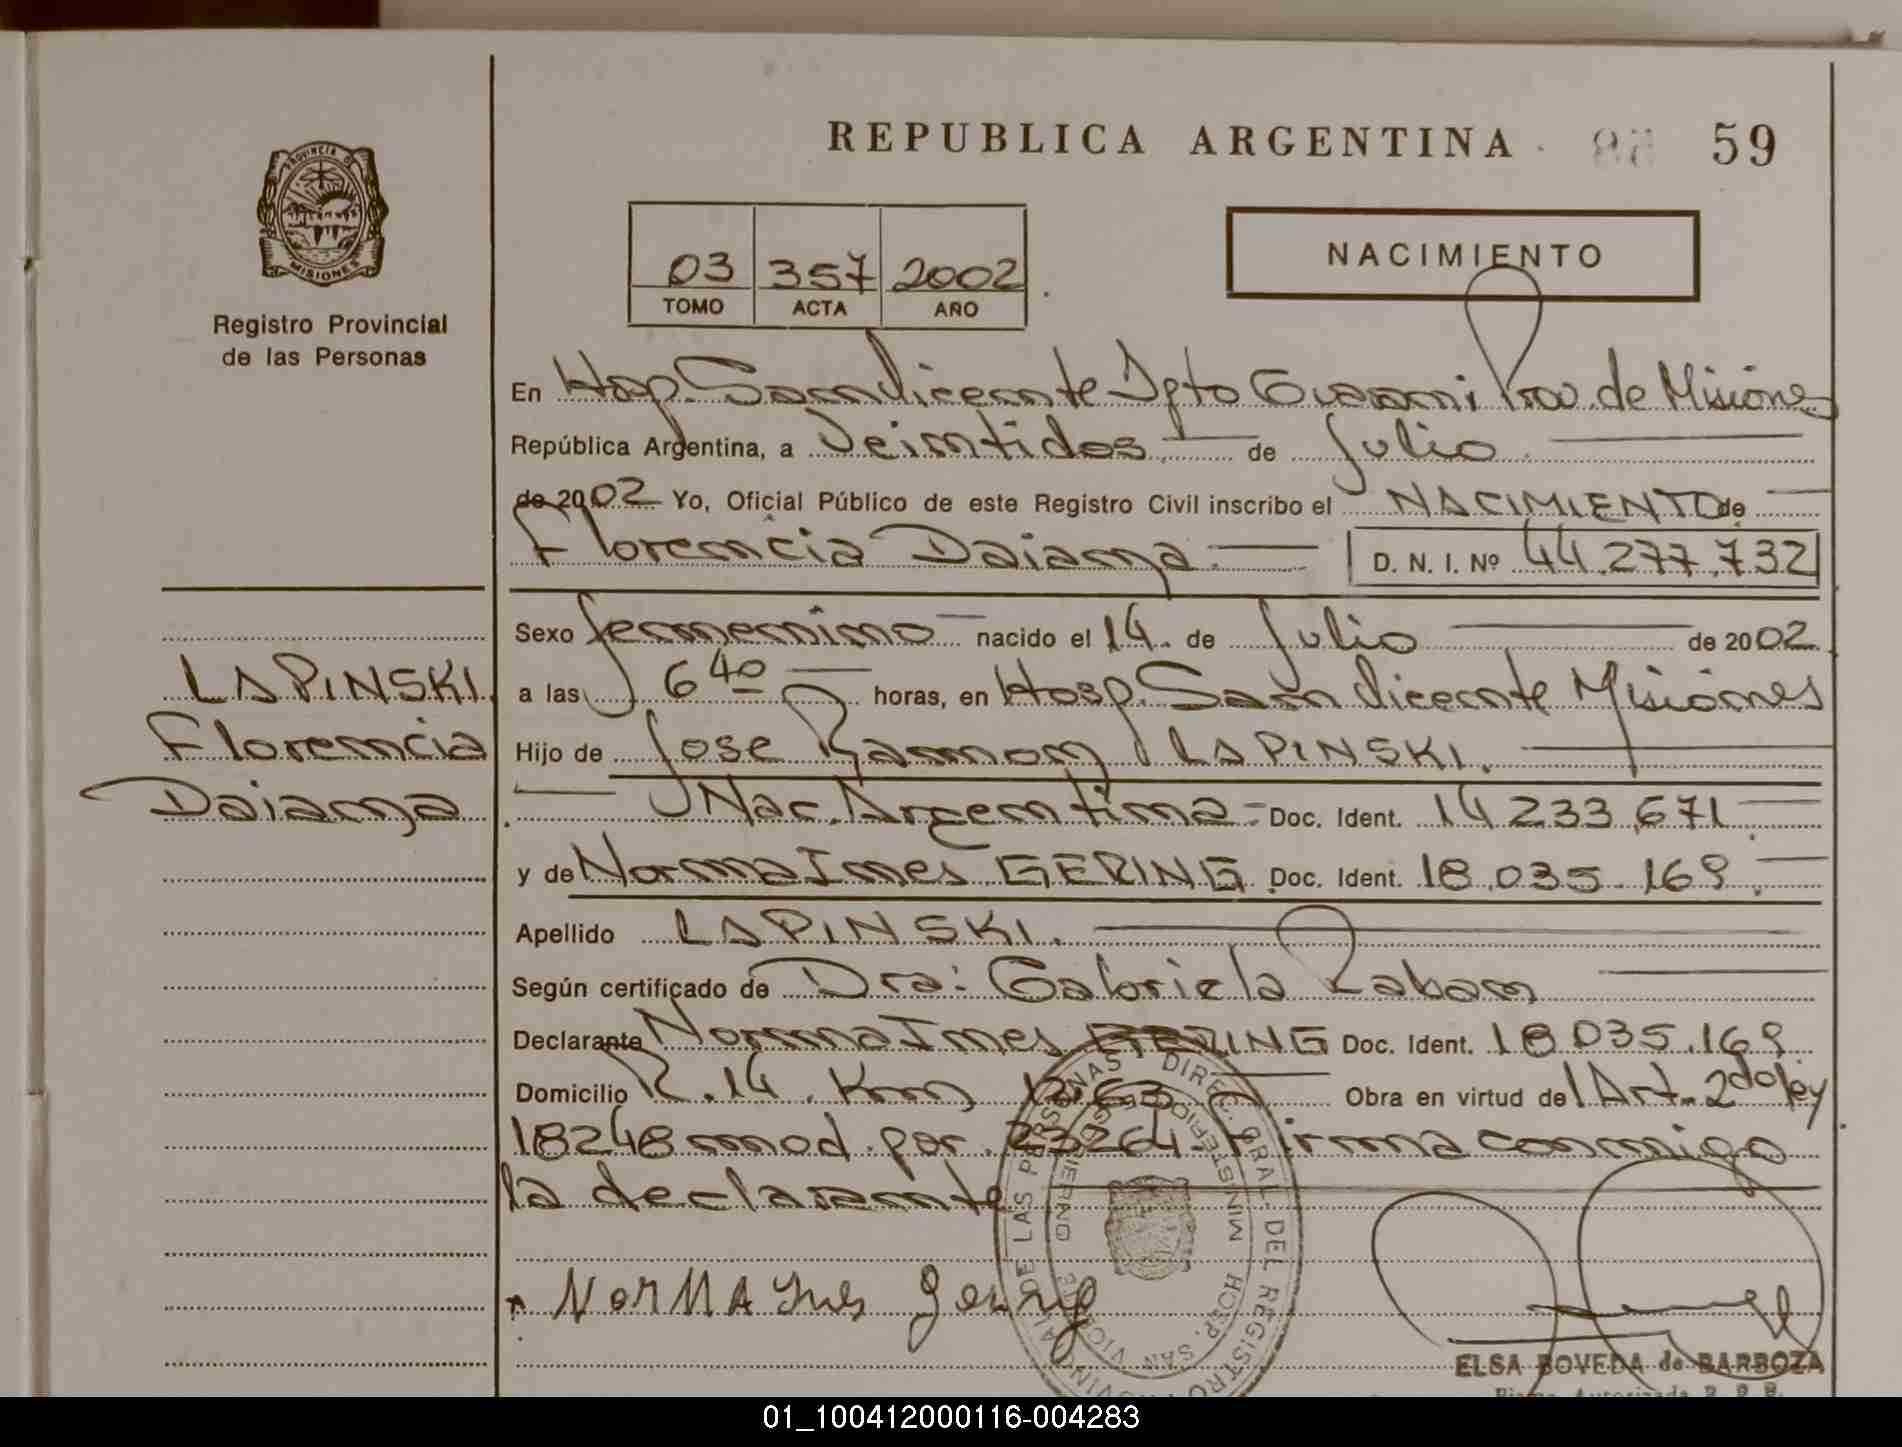 REPUBLICA ARGENTINA 59
PROVINCIA DE
MISIONES
Registro Provincial
de las Personas
03 357 2002
TOMO ACTA AÑO
NACIMIENTO
En Hosp. San Vicente Dpto Guarani Prov. de Misiones
República Argentina, a Veintidos de Julio
de 2002 Yo, Oficial Público de este Registro Civil inscribo el NACIMIENTO de
Florencia Daiana D. N. I. Nº 44.277.732
Sexo femenino nacido el 14 de Julio de 2002
LAPINSKI
Florencia
Daiana
a las 6 40 horas, en Hosp. San Vicente Misiones
Hijo de Jose Ramon LAPINSKI.
Nac. Argentina Doc. Ident. 14 233 671
y de Norma Ines GERING Doc. Ident. 18.035.169
Apellido LAPINSKI.
Según certificado de Dra: Gabriela Laban
Declarante Norma Ines GERING Doc. Ident. 18 035.169
Domicilio R. 14 Km 1263 Obra en virtud del Art. 2do ley
18248 mod. por 23264. Firma conmigo
la declarante
NORMA Ines Gering
DIREC. GRAL DEL REGISTRO PROVINCIAL DE LAS PERSONAS
MINISTERIO DE GOBIERNO
HOSP. SAN VICE
ELSA BOVEDA de BARBOZA
Firma Autorizada R. P. P.
01_100412000116-004283